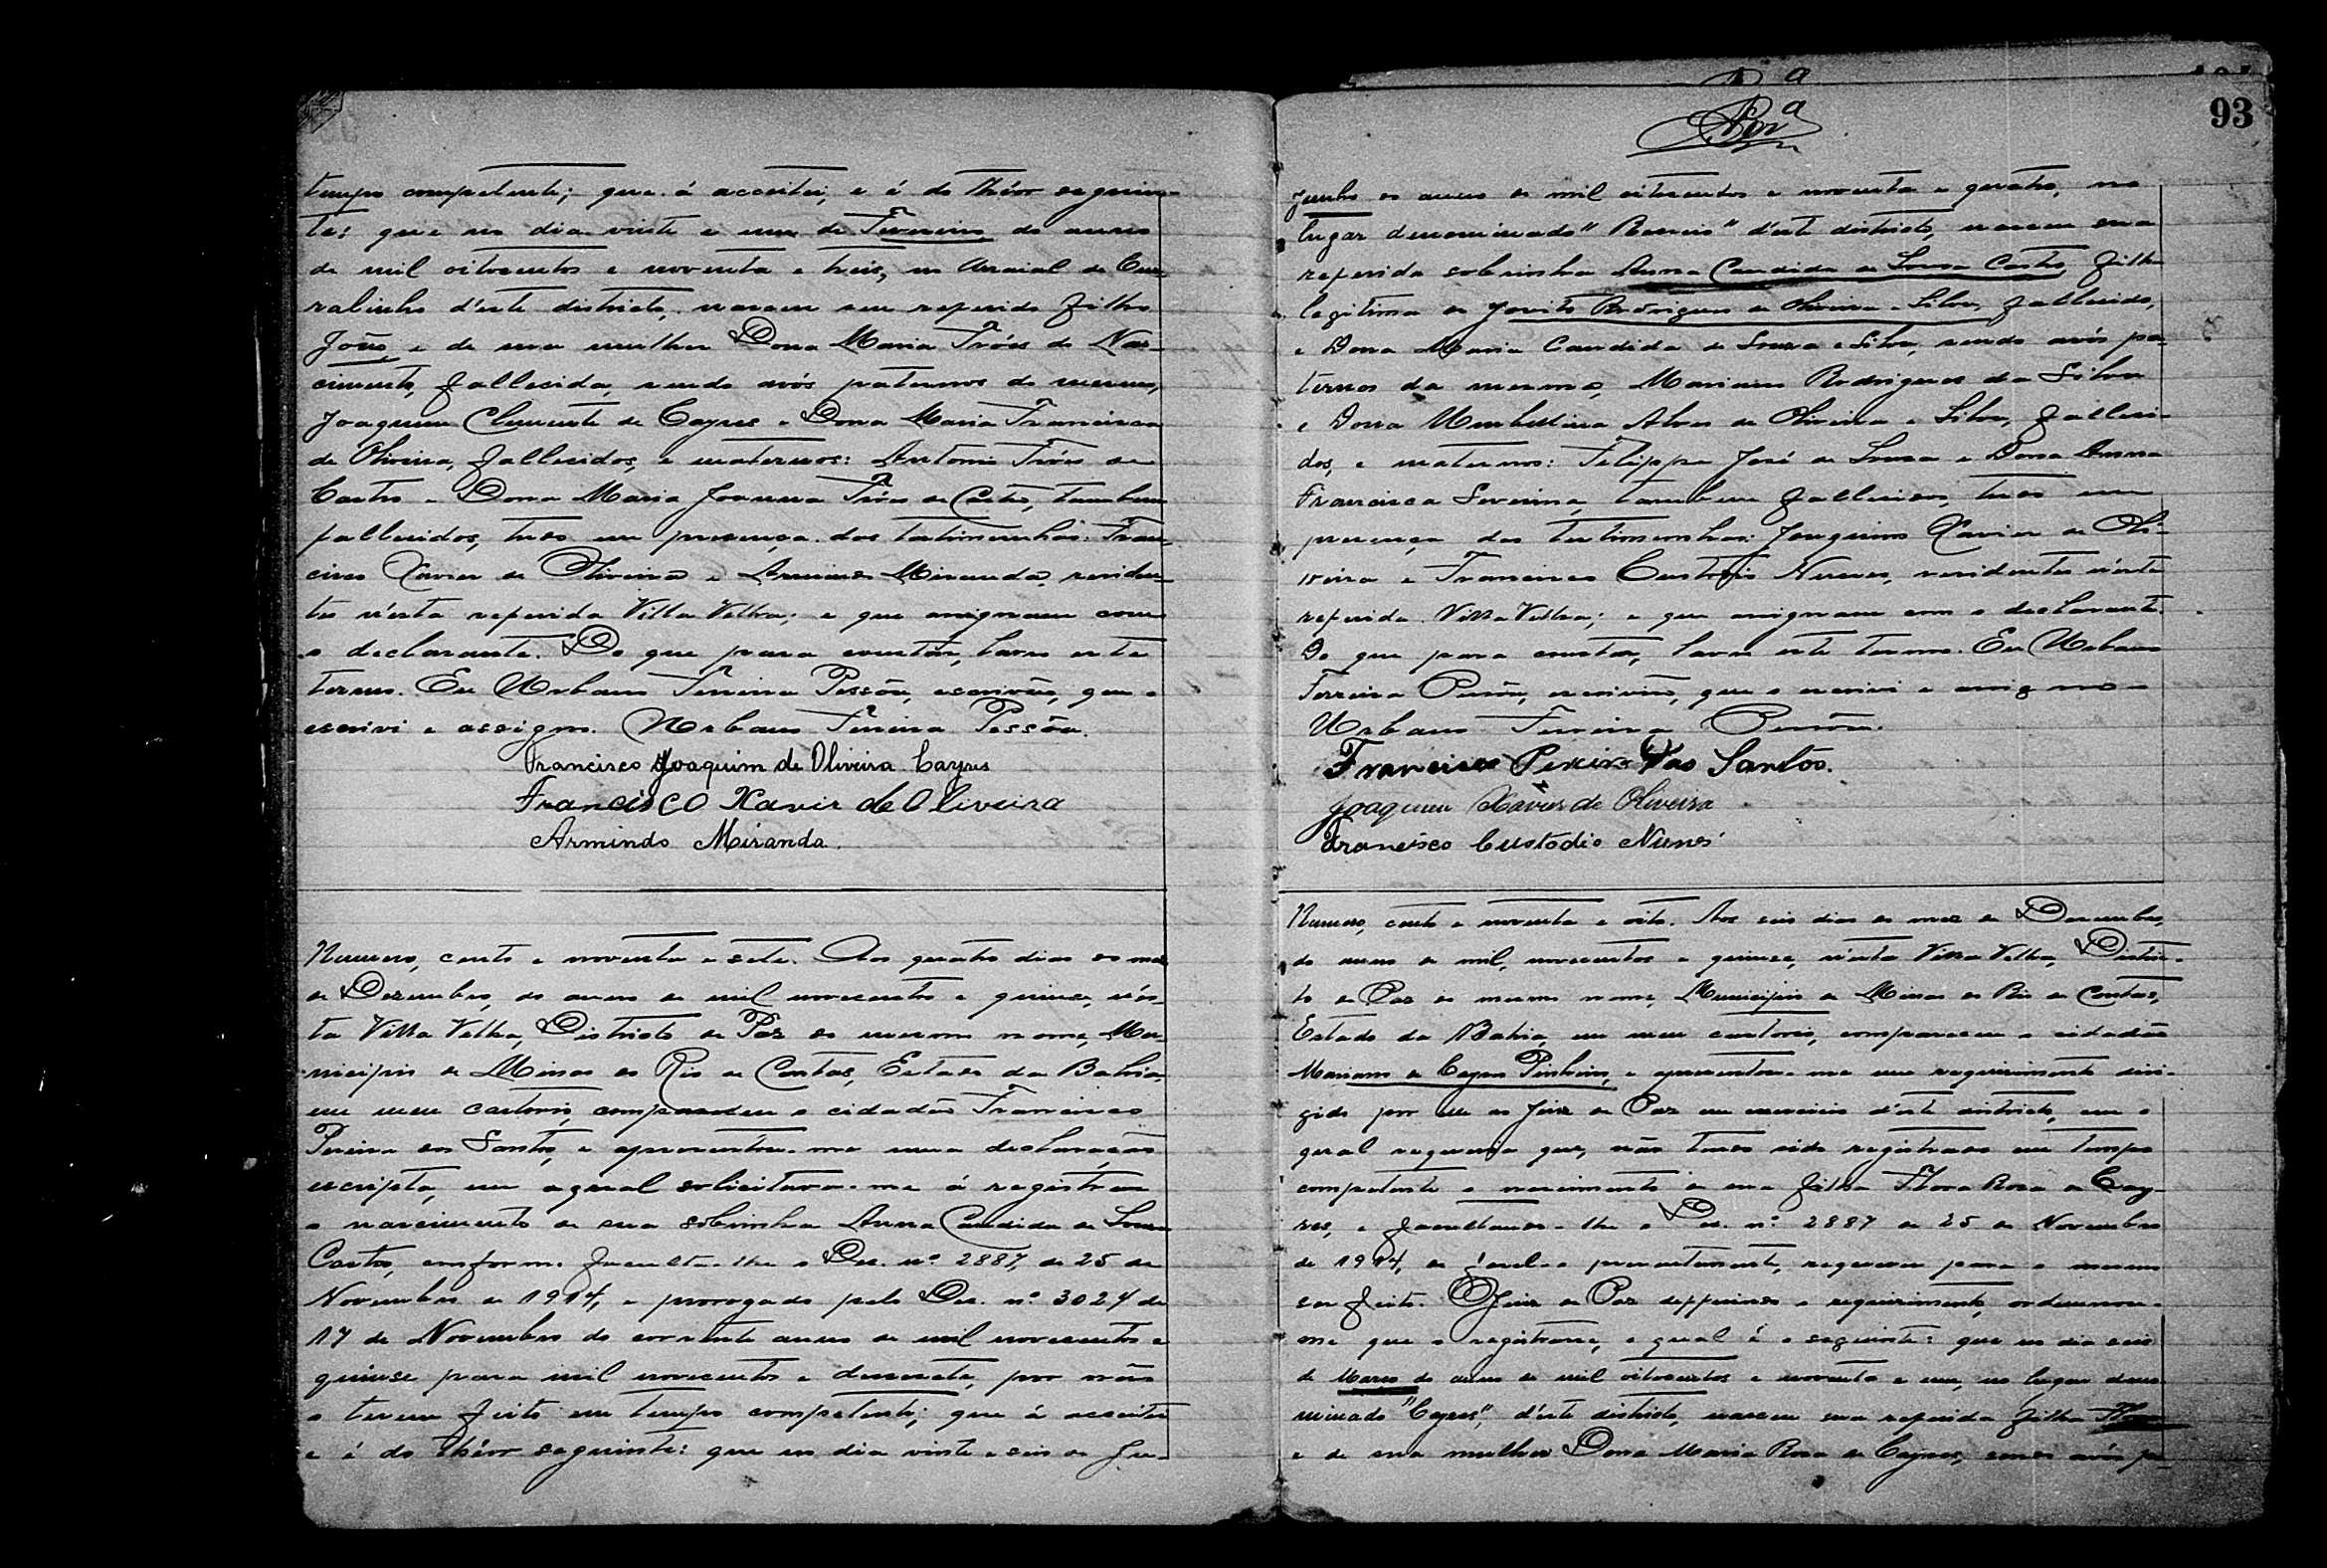 tempo competente; que á acceitei, e é do theor seguin-
te: que no dia vinte e um de Fevereiro do anno
de mil oitocentos e noventa e treis, no Arraial de Cur-
ralinho d'este districto, nasceu seu referido filho
João e de sua mulher Dona Maria Fróes do Nas-
cimento, fallecida, sendo avós paternos do mesmo,
Joaquim Clemente de Cayres e Dona Maria Francisca
de Oliveira, fallecidos, e maternos: Antonio Fróes de
Castro e Dona Maria Joanna Fróes de Castro, tambem
fallecidos, tudo em presença das testimunhas: Fran-
cisco Xavier de Oliveira e Armindo Miranda, residen-
tes n'esta referida Villa Velha; e que assignam com
o declarante. Do que para constar, lavro este
termo. Eu Urbano Ferreira Pessôa, escrivão, que o
escrivi e assigno. Urbano Ferreira Pessôa.
Francisco Joaquim de Oliveira Cayres
Francisco Xavir de Oliveira
Armindo Miranda.
Numero, cento e noventa e sete. Aos quatro dias do mez
de Dezembro, do anno de mil novecentos e quinze, n'es-
ta Villa Velha, Districto de Paz do mesmo nome, Mu-
nicipio de Minas do Rio de Contas, Estado da Bahia,
em meu cartorio, compareceu o cidadão Francisco
Pereira dos Santos, e apresentou-me uma declaração
escripta, em a qual solicitava-me á registrar
o nascimento de sua sobrinha Anna Candida de Souza
Castro, conforme faculta-lhe o Dec. nº 2887, de 25 de
Novembro de 1914, e prorogado pelo Dec. nº 3024 de
17 de Novembro do corrente anno de mil novecentos e
quinse para mil novecentos e desesete, por não
o terem feito em tempo competente; que á acceitei
e é do theor seguinte: que no dia vinte e seis de Ju-
93
junho do anno de mil oitocentos e noventa e quatro, no
lugar denominado " " d'este districto, nasceu sua
referida sobrinha Anna Candida de Souza Castro, filha
legitima de Jovito Rodrigues de Oliveira e Silva, fallecido,
e Dona Maria Candida de Souza e Silva, sendo avós pa-
ternos da mesma, Mariano Rodrigues da Silva
e Dona Umbellina Alves de Oliveira e Silva, falleci-
dos, e maternos: Felippe José de Souza e Dona Anna
Francisca Severina, tambem fallecidos, tudo em
presença das testimonhas: Joaquim Xavier de Oli-
veira e Francisco Custodio Nunes, residentes n'esta
referida Villa Velha; e que assignam com o declarante.
Do que para constar, lavro este termo. Eu Urbano
Ferreira Pessôa, escrivão, que o escrivi e assigno
Urbano Ferreira Pessôa.
Francisco Pereira dos Santos.
Joaquim Xavier de Oliveira
Francisco Custodio Nunes
Numero, cento e noventa e oito. Aos seis dias do mez de Dezembro,
do anno de mil, novecentos e quinze, n'esta Villa Velha, Distric-
to de Paz do mesmo nome, Municipio de Minas do Rio de Contas,
Estado da Bahia, em meu cartorio, compareceu o cidadão
Mariano de Cayres Pinheiro, e apresentou-me um requerimento diri-
gido por elle ao Juiz de Paz em exercicio d'este districto, em o
qual requeria que, não tendo sido registrado em tempo
competente o nascimento de sua filha Flora Rosa de Cay-
res, e facultando-lhe o Dec. nº 2887 de 25 de Novembro
de 1914, de fazel-o presentemente, requeria para o mesmo
ser feito. O Juiz de Paz defferindo o requerimento, ordennou-
me que o registrasse, o qual é o seguinte: que no dia seis
de Março do anno de mil oitocentos e noventa e um, no lugar deno-
minado "Cayres", d'este districto, nasceu sua referida filha Flora
e de sua mulher Dona Maria Rosa de Cayres, sendo avós pa-